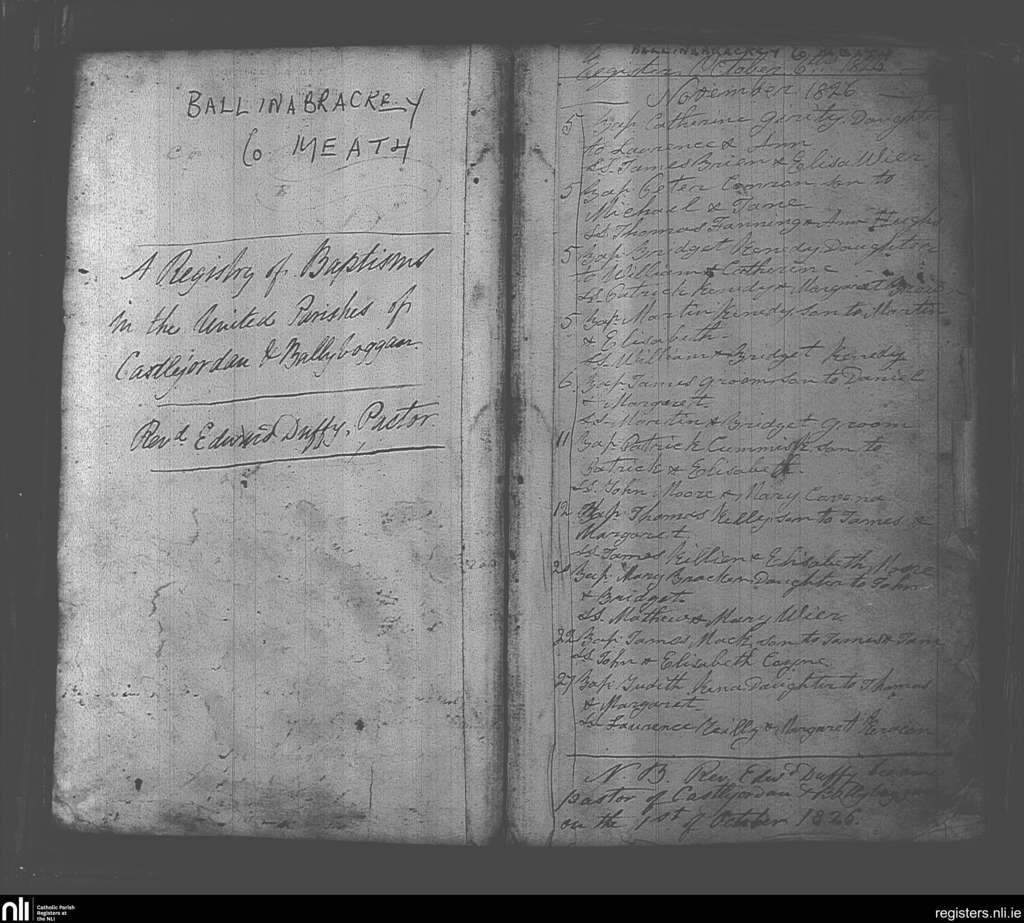 BALLINABRACKEY
Co MEATH
A Registry of Baptisms
in the United Parishes of
Castlejordan & Ballyboggan.
Revd Edward Duffy, Pastor
BALLINABRACKEY Co MEATH
Register October
November 1826
5 Bap Catherine Gerity, Daughter
to Lawrence & Ann
Ss. James Brien & Elisa Wier
5 Bap Peter Connon son to
Michael & Jane
Ss Thomas Fanning & Ann
5 Bap Bridget Kenedy Daughter
to William & Catherine
Ss. Patrick Kenedy & Margaret
5 Bap Martin Kenedy son to Martin
& Elisabeth
Ss. William & Bridget Kenedy
6 Bap James Groom son to Daniel
& Margaret
Ss. Martin & Bridget Groom
11 Bap Patrick Cummisk son to
Patrick & Elisabeth
Ss. John Moore & Mary Cavena
12 Bap Thomas Kelly son to James &
Margaret
Ss James Killien & Elisabeth Moore
20 Bap Mary Bracken Daughter to John
& Bridget
Ss. Mathew & Mary Wier
22 Bap James Mack son to James & Jane
Ss John & Elisabeth Coyne
27 Bap Judith Kena Daughter to Thomas
& Margaret
Ss Laurence Reilly & Margaret
N. B. Rev. Edwd Duffy became
pastor of Castlejordan & Ballyboggan
on the 1st of October 1826.
nli
Catholic Parish
Registers at
the NLI
registers.nli.ie